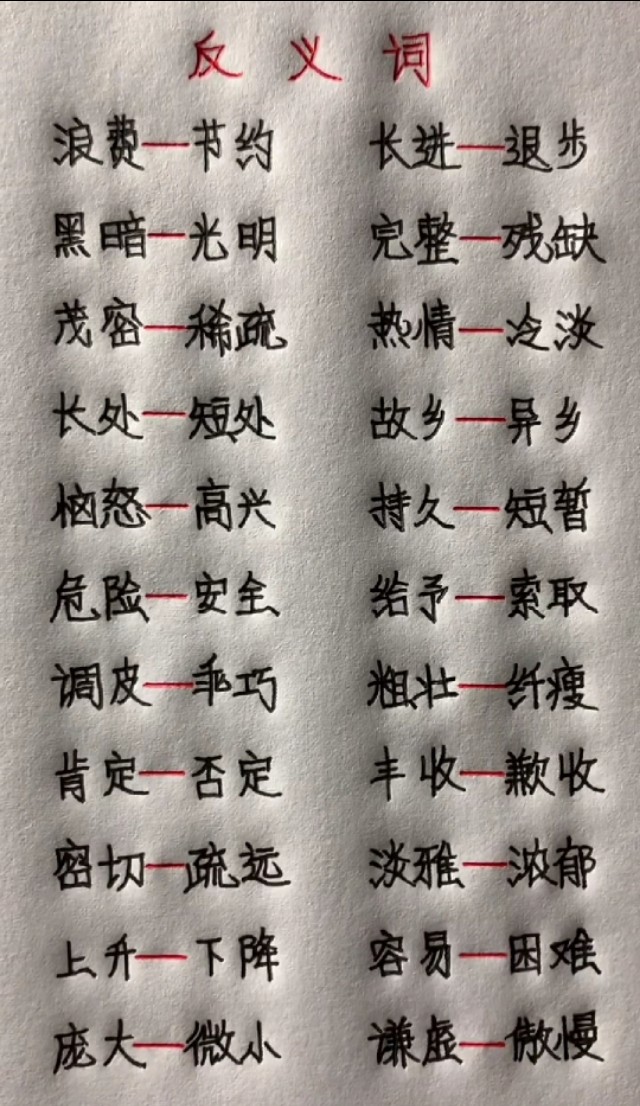 反义词
浪费—节约 长进—退步
黑暗—光明 完整—残缺
茂密—稀疏 热情—冷淡
长处—短处 故乡—异乡
恼怒—高兴 持久—短暂
危险—安全 给予—索取
调皮—乖巧 粗壮—纤瘦
肯定—否定 丰收—歉收
密切—疏远 淡雅—浓郁
上升—下降 容易—困难
庞大—微小 谦虚—傲慢